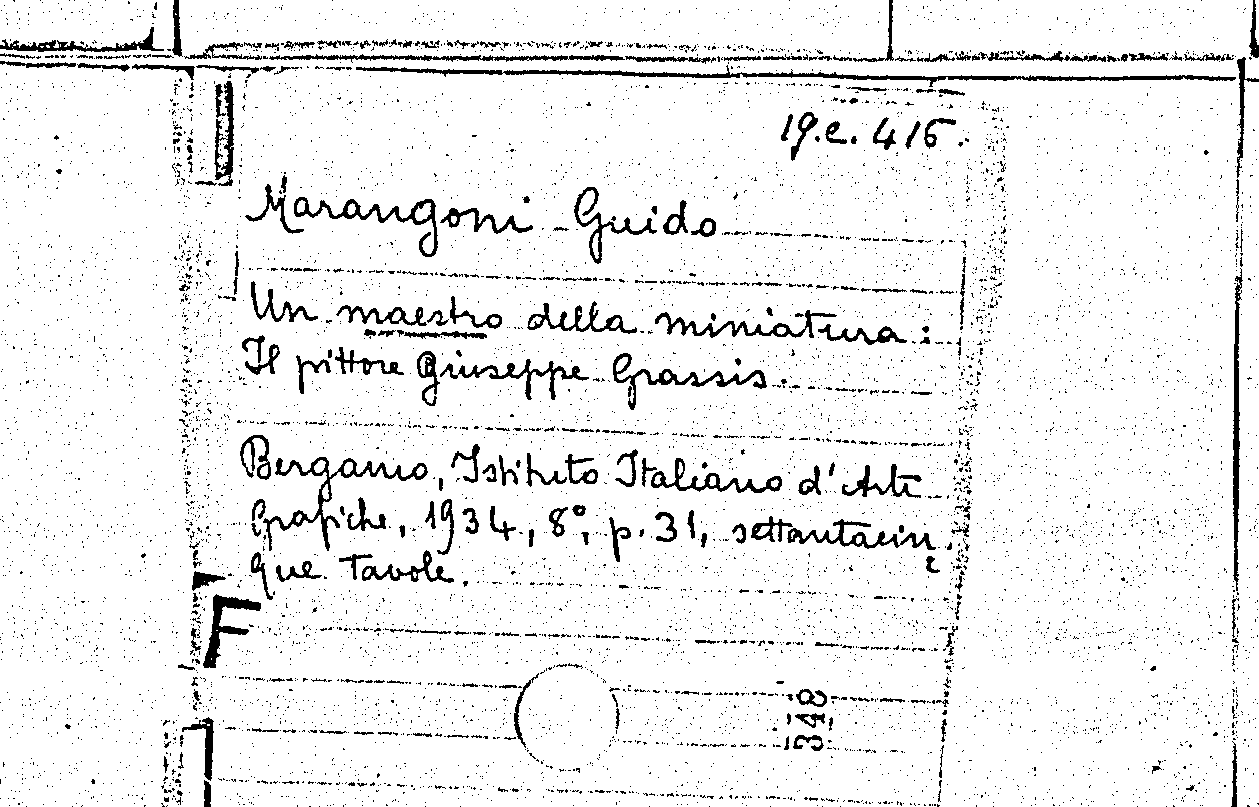 19.e.415.
Marangoni - Guido
Un maestro della miniatura:
Il pittore Giuseppe Grassis.
Bergamo, Istituto Italiano d'Arti
Grafiche, 1934, 8°, p. 31, settantacin
que tavole.
348